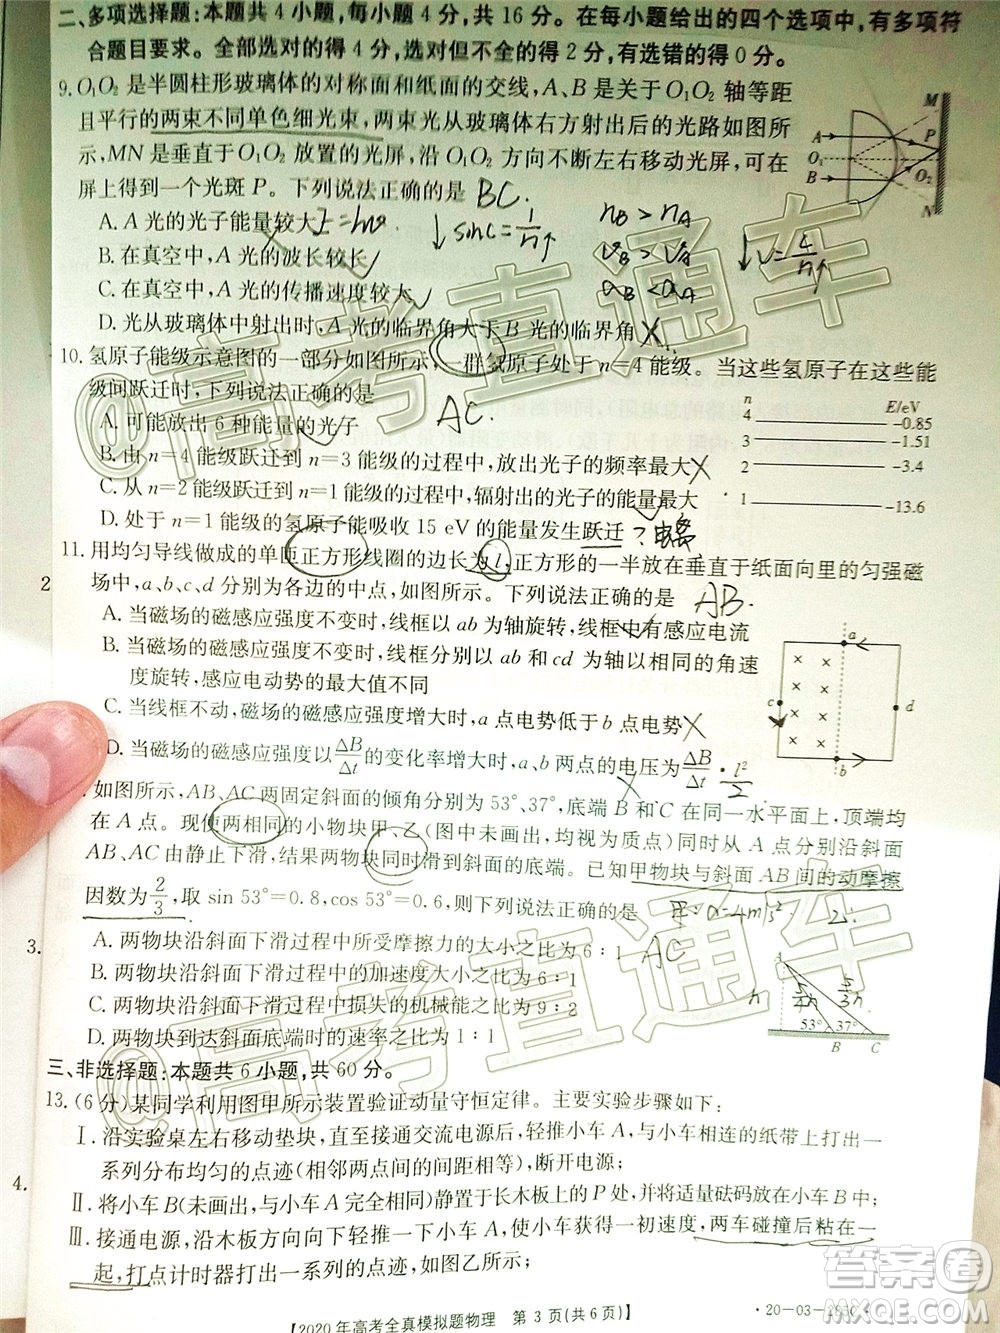 二、多项选择题:本题共4小题,每小题4分,共16分。在每小题给出的四个选项中,有多项符
合题目要求。全部选对的得4分,选对但不全的得2分,有选错的得0分。
9. O₁O₂是半圆柱形玻璃体的对称面和纸面的交线,A、B是关于O₁O₂轴等距
且平行的两束不同单色细光束,两束光从玻璃体右方射出后的光路如图所
示,MN是垂直于O₁O₂放置的光屏,沿O₁O₂方向不断左右移动光屏,可在
屏上得到一个光斑P。下列说法正确的是 BC.
A. A光的光子能量较大
B. 在真空中,A光的波长较长
C. 在真空中,A光的传播速度较大
D. 光从玻璃体中射出时,A光的临界角大于B光的临界角 X
↓sinC=1/n↑
n_B>n_A
↓v=c/n↑
M
A
O₁
B
P
O₂
N
10. 氢原子能级示意图的一部分如图所示,一群氢原子处于n=4能级。当这些氢原子在这些能
级间跃迁时,下列说法正确的是 AC.
A. 可能放出6种能量的光子
B. 由n=4能级跃迁到n=3能级的过程中,放出光子的频率最大 X
C. 从n=2能级跃迁到n=1能级的过程中,辐射出的光子的能量最大
D. 处于n=1能级的氢原子能吸收15 eV的能量发生跃迁 ? 电离
n E/eV
4 -0.85
3 -1.51
2 -3.4
1 -13.6
11. 用均匀导线做成的单匝正方形线圈的边长为l,正方形的一半放在垂直于纸面向里的匀强磁
场中,a、b、c、d分别为各边的中点,如图所示。下列说法正确的是 AB.
A. 当磁场的磁感应强度不变时,线框以ab为轴旋转,线框中有感应电流
B. 当磁场的磁感应强度不变时,线框分别以ab和cd为轴以相同的角速
度旋转,感应电动势的最大值不同
C. 当线框不动,磁场的磁感应强度增大时,a点电势低于b点电势 X
D. 当磁场的磁感应强度以ΔB/Δt的变化率增大时,a、b两点的电压为ΔB/Δt·l²/2 X
a
c
d
b
. 如图所示,AB、AC两固定斜面的倾角分别为53°、37°,底端B和C在同一水平面上,顶端均
在A点。现使两相同的小物块甲、乙(图中未画出,均视为质点)同时从A点分别沿斜面
AB、AC由静止下滑,结果两物块同时滑到斜面的底端。已知甲物块与斜面AB间的动摩擦
因数为2/3,取sin 53°=0.8,cos 53°=0.6,则下列说法正确的是 甲:a=4m/s²
A. 两物块沿斜面下滑过程中所受摩擦力的大小之比为6∶1 AC
B. 两物块沿斜面下滑过程中的加速度大小之比为6∶1
C. 两物块沿斜面下滑过程中损失的机械能之比为9∶2
D. 两物块到达斜面底端时的速率之比为1∶1
A
h
5/4h
5/3h
53° 37°
B C
三、非选择题:本题共6小题,共60分。
13. (6分)某同学利用图甲所示装置验证动量守恒定律。主要实验步骤如下:
Ⅰ. 沿实验桌左右移动垫块,直至接通交流电源后,轻推小车A,与小车相连的纸带上打出一
系列分布均匀的点迹(相邻两点间的间距相等),断开电源;
Ⅱ. 将小车B(未画出,与小车A完全相同)静置于长木板上的P处,并将适量砝码放在小车B中;
Ⅲ. 接通电源,沿木板方向向下轻推一下小车A,使小车获得一初速度,两车碰撞后粘在一
起,打点计时器打出一系列的点迹,如图乙所示。
【2020年高考全真模拟题物理 第3页(共6页)】
2
3.
4.
@高考直通车
@高考直通车
答案圈